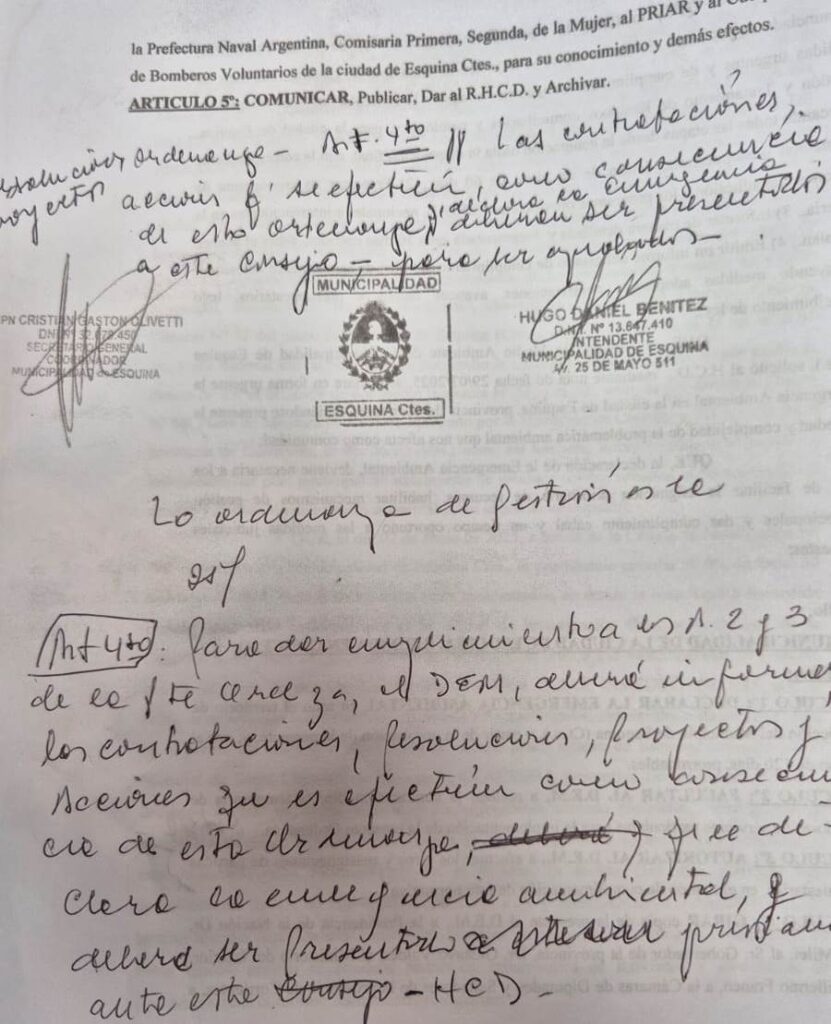 la Prefectura Naval Argentina, Comisaria Primera, Segunda, de la Mujer, al PRIAR y al
de Bomberos Voluntarios de la ciudad de Esquina Ctes., para su conocimiento y demás efectos.
ARTICULO 5º: COMUNICAR, Publicar, Dar al R.H.C.D. y Archivar.
ordenanza - Art. 4to // Las contrataciones,
se efectúen, como consecuencia
declara la emergencia
de esta ordenanza, deberán ser presentados
a este Consejo - para ser aprobados -
MUNICIPALIDAD
ESQUINA Ctes.
CPN CRISTIAN GASTON OLIVETTI
SECRETARIO GENERAL
COORDINADOR
MUNICIPALIDAD de ESQUINA
HUGO DANIEL BENITEZ
D.N.I. Nº 13.647.410
INTENDENTE
MUNICIPALIDAD DE ESQUINA
Av. 25 DE MAYO 511
La ordenanza de Gestión
Art 4to: Para dar cumplimiento a 2 y 3
de la el DEM, deberá informar
las contrataciones, Resoluciones, Proyectos y
Acciones que se efectúen como consecuen
cia de esta Ordenanza, deberá, que de-
clara la emergencia ambiental, y
deberá ser Presentado
ante este Consejo - HCD -